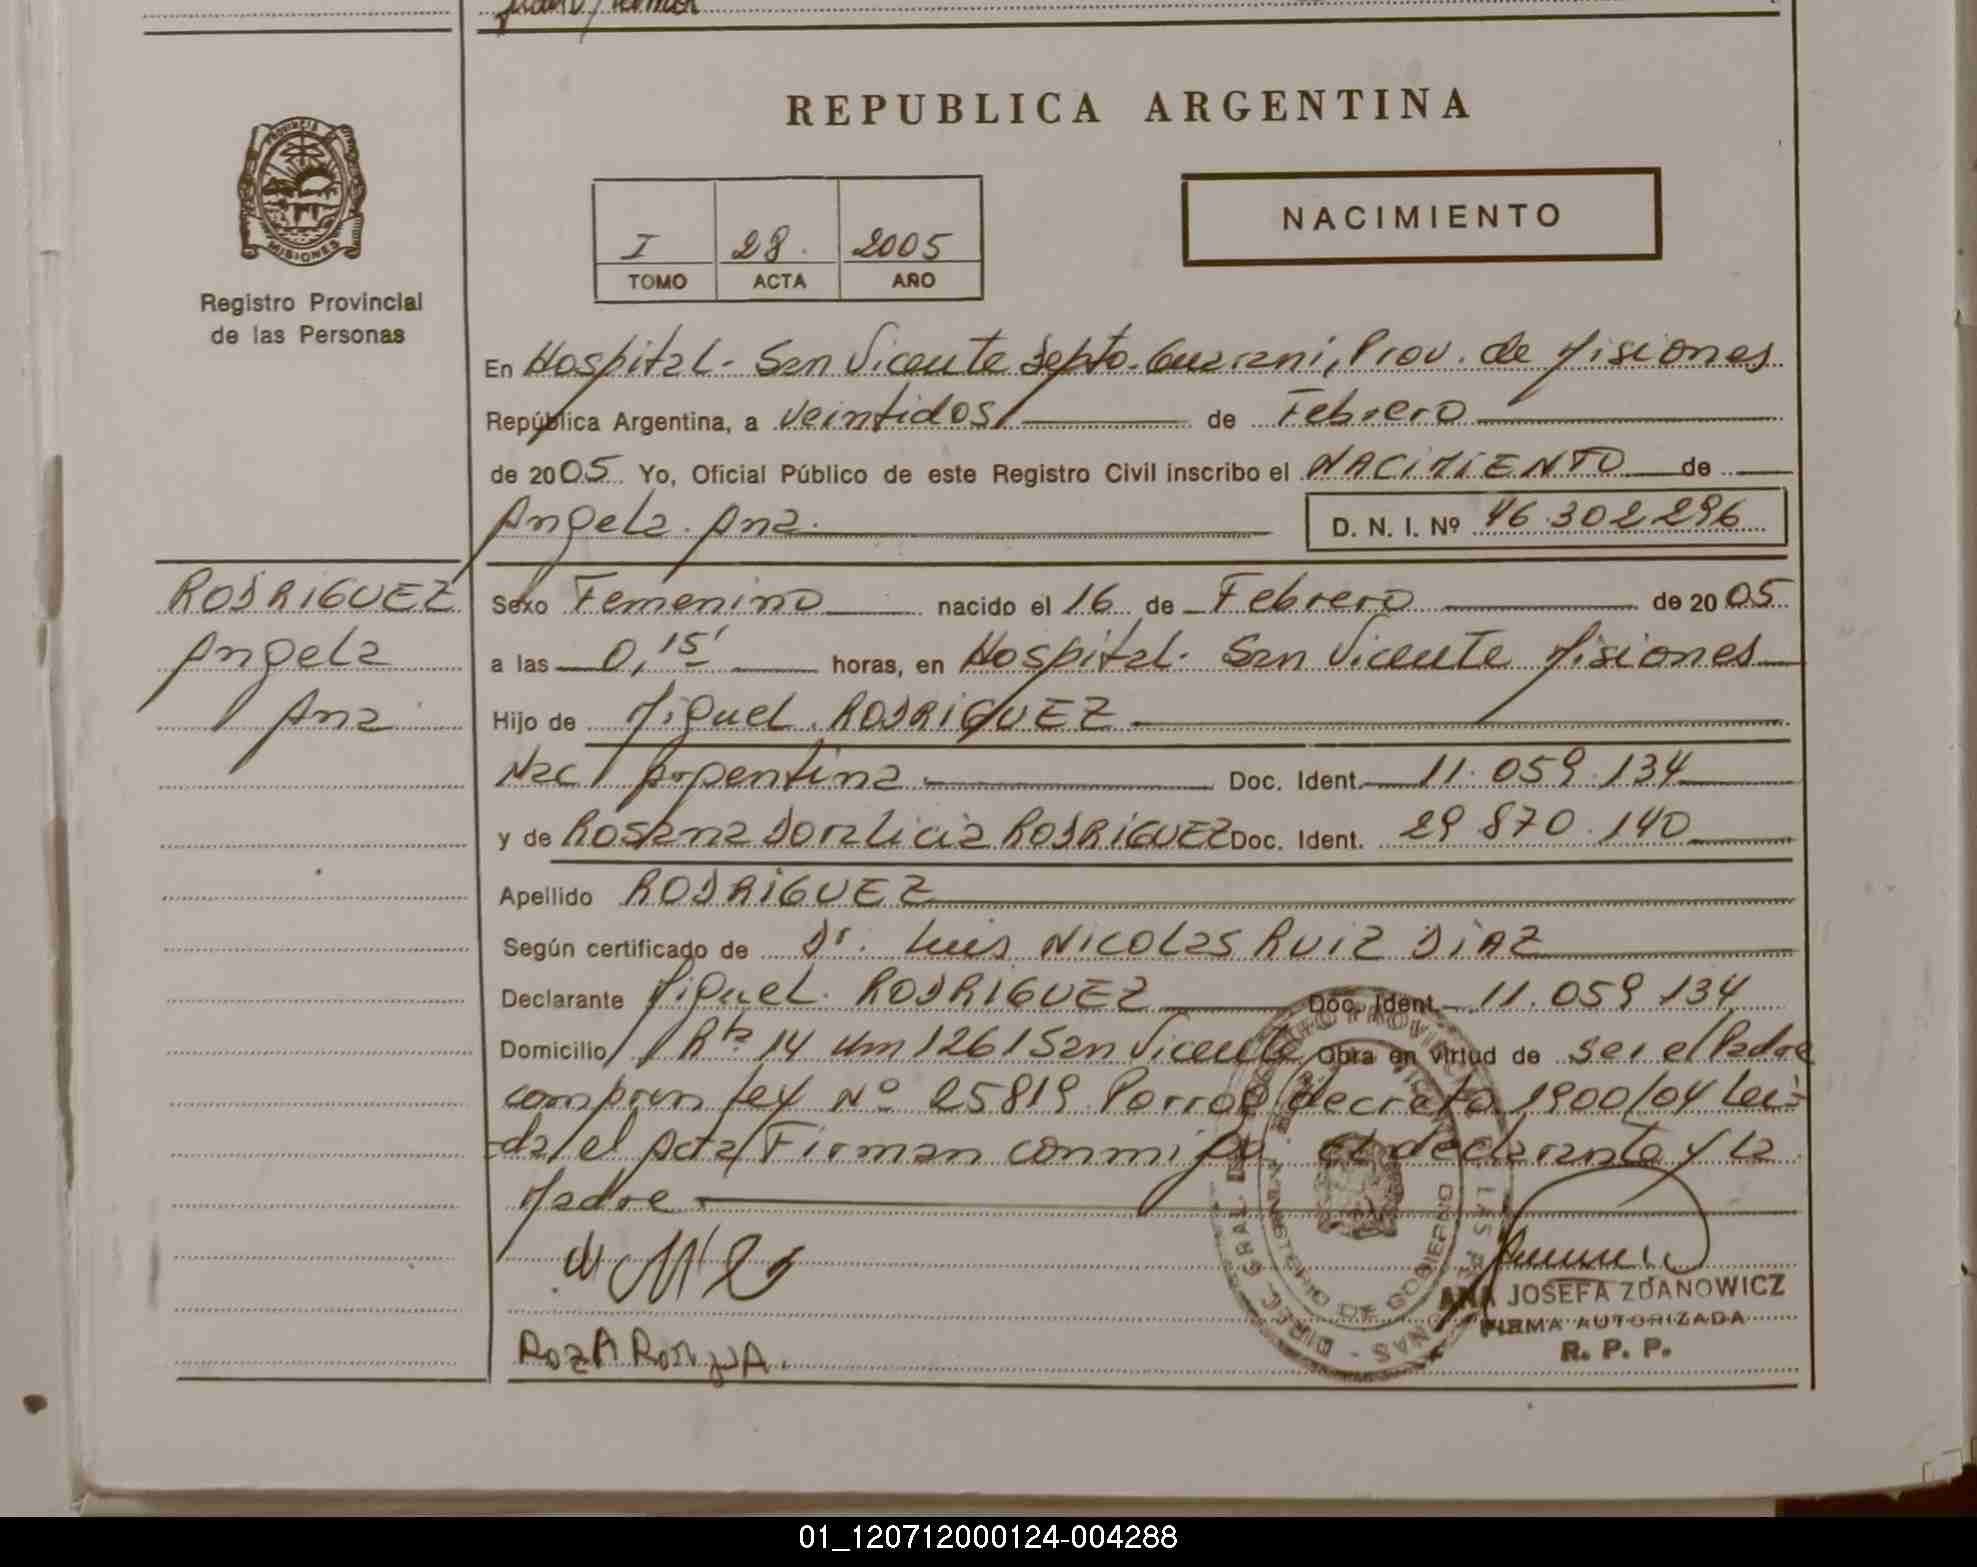 REPUBLICA ARGENTINA
PROVINCIA
MISIONES
Registro Provincial
de las Personas
I 28. 2005
TOMO ACTA AÑO
NACIMIENTO
En Hospital - San Vicente Depto. Guarani, Prov. de Misiones
República Argentina, a veintidos de Febrero
de 2005 Yo, Oficial Público de este Registro Civil inscribo el NACIMIENTO de
Angela Ana
D. N. I. Nº 46.302.296
RODRIGUEZ
Angela
Ana
Sexo Femenino nacido el 16 de Febrero de 2005
a las 0,15' horas, en Hospital - San Vicente Misiones
Hijo de Miguel RODRIGUEZ
Nac Argentina Doc. Ident. 11.059.134
y de Rosana Doralicia RODRIGUEZ Doc. Ident. 29.870.140
Apellido RODRIGUEZ
Según certificado de Dr. Luis Nicolas RUIZ DIAZ
Declarante Miguel RODRIGUEZ Doc. Ident. 11.059.134
Domicilio Rta 14 Km 1261 San Vicente Obra en virtud de ser el Padre
Ley Nº 25819 Porrog decreto 1900/04 Lei-
da el Acta Firman conmigo el declarante y la
Madre
ANA JOSEFA ZDANOWICZ
FIRMA AUTORIZADA
R. P. P.
MINISTERIO DE GOBIERNO
01_120712000124-004288